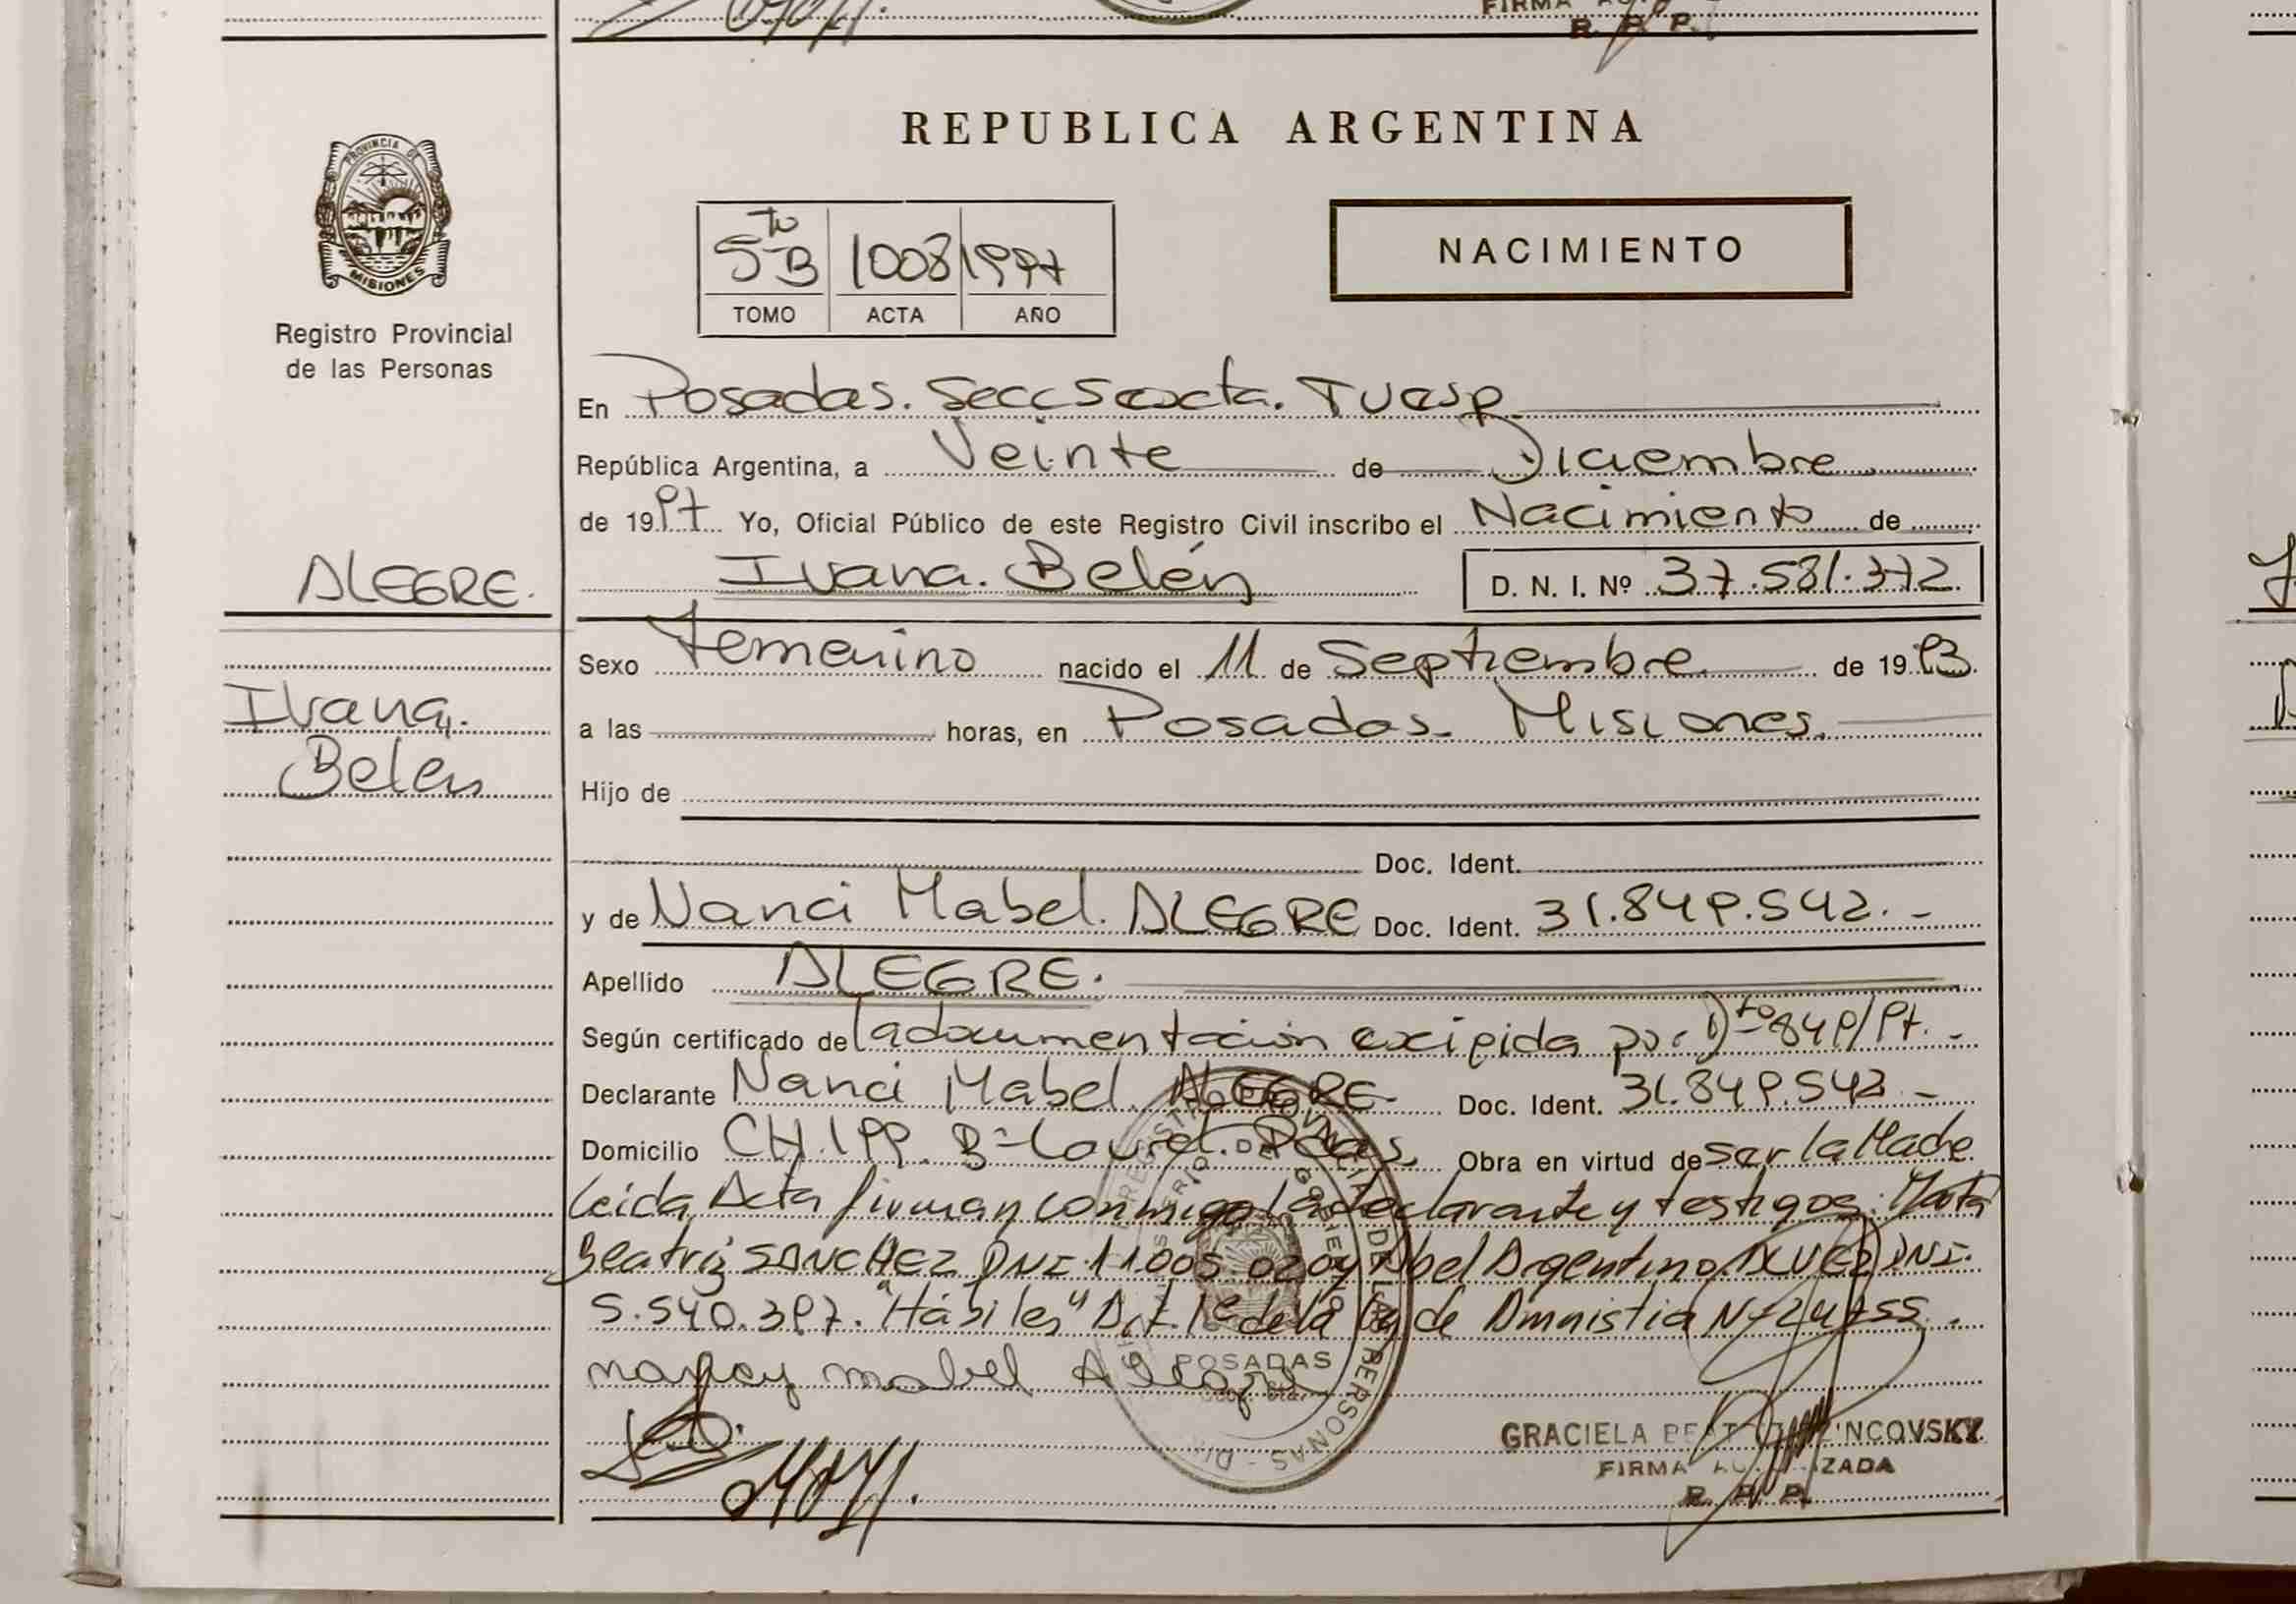 FIRMA
R. P. P.
REPUBLICA ARGENTINA
PROVINCIA DE
MISIONES
Registro Provincial
de las Personas
5to B 1008 1997
TOMO ACTA AÑO
NACIMIENTO
En Posadas. Secc Sexta. Tvasp
República Argentina, a Veinte de Diciembre
de 1997 Yo, Oficial Público de este Registro Civil inscribo el Nacimiento de
ALEGRE.
Ivana. Belén D. N. I. Nº 37.581.372.
Sexo Femenino nacido el 11 de Septiembre de 1993.
Ivana.
Belén
a las horas, en Posadas. Misiones.
Hijo de
Doc. Ident.
y de Nanci Mabel. ALEGRE Doc. Ident. 31.849.542. -
Apellido ALEGRE.
Según certificado de la documentación exigida por Dto 849/97. -
Declarante Nanci Mabel. ALEGRE Doc. Ident. 31.849.542 -
Domicilio CH. 199. Bº Pdas. Obra en virtud de ser la Madre
Leída Acta firman conmigo la declarante y testigos:
Beatriz SANCHEZ DNI 11.005.020 y Abel Argentino DNI.
5.540.397. "Hábiles" Art. 1º de la Ley de Amnistia Nº 24.755.
nancy mabel Alegre
POSADAS
GRACIELA
FIRMA
R. P. P.